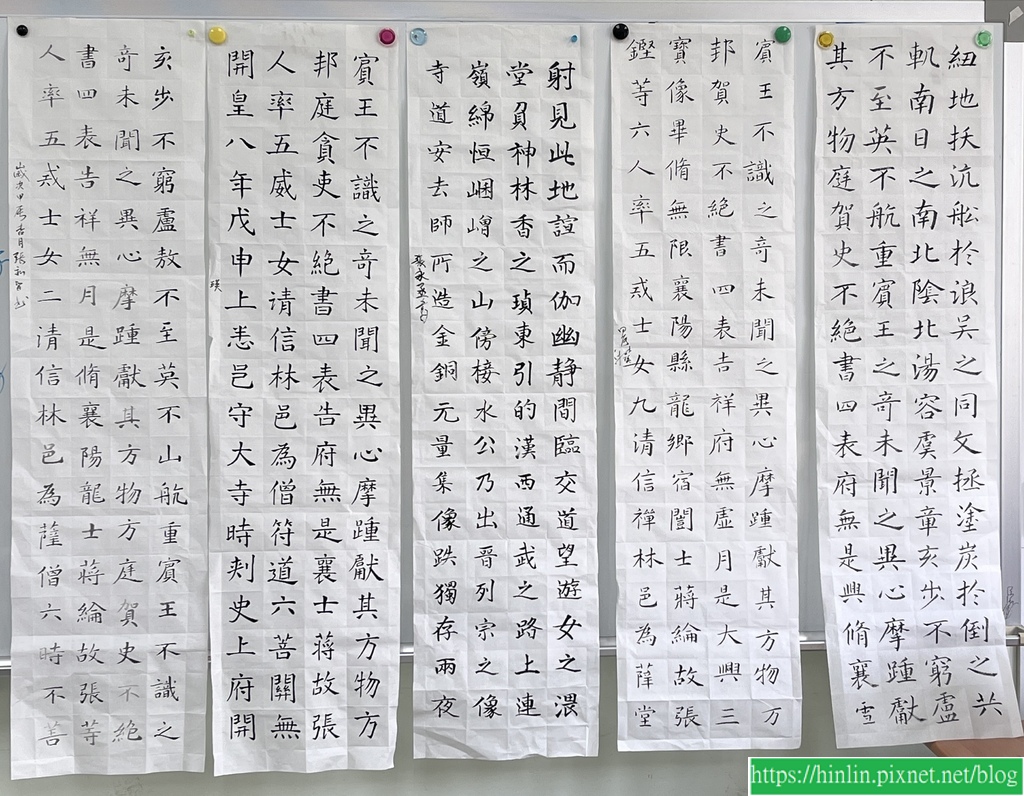 紐地扶沆舩於浪吴之同文拯塗炭扵倒之共
軏南日之南北陰北湯容虞景章亥步不窮盧
不至英不航重賔王之竒未聞之異心摩踵獻
其方物庭賀史不絕書四表府無是興脩襄雪
賔王不識之竒未聞之異心摩踵獻其方物万
邦賀史不絕書四表告祥府無虛月是大興三
寶像畢脩無限襄陽縣龍鄉宿誾士蔣綸故張
鏗等六人率五戒士女九清信禪林邑為薩堂
射見此地諠而伽幽靜閒臨交道望游女之隈
堂負神林香之瑱東引的漢西通武之路上連
嶺綿恒崓嶒之山傍棱水公乃出晋列宗之像
寺道安去師所造金銅元量集像跌獨存兩夜
賔王不識之竒未聞之異心摩踵獻其方物方
邦庭貪吏不絕書四表告府無是襄士蔣故張
人率五威士女清信林邑為僧符道六菩關無
開皇八年戊申上恙邑守大寺時刾史上府開
瑛
亥步不窮盧敖不至英不山航重賔王不識之
奇未聞之異心摩踵獻其方物方庭賀史不絕
書四表告祥無月是脩襄陽龍士蔣綸故張等
人率五戒士女二清信林邑為薩僧六時不善
https://hinlin.pixnet.net/blog